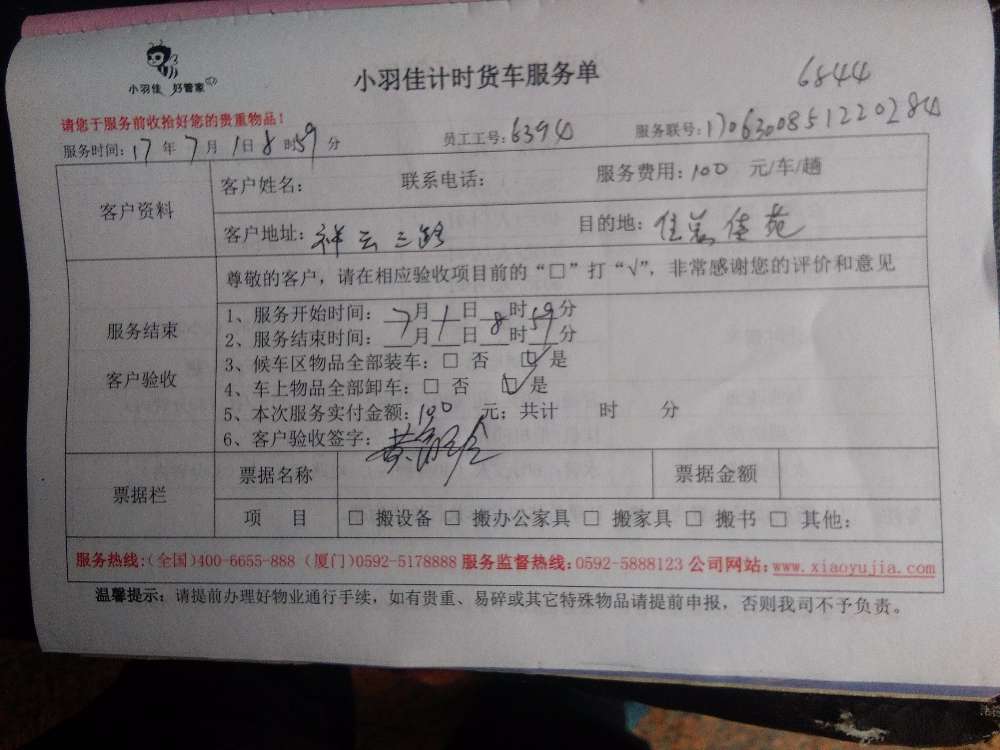 小羽佳 好管家
小羽佳计时货车服务单
6844
请您于服务前收拾好您的贵重物品!
服务时间:17年7月1日8时59分 员工工号:6394 服务联号:1706300851220284
客户资料
客户姓名: 联系电话: 服务费用:100 元/车/趟
客户地址:祥云三路 目的地:住总佳苑
尊敬的客户，请在相应验收项目前的“□”打“√”，非常感谢您的评价和意见
服务结束
客户验收
1、服务开始时间: 7月1日8时59分
2、服务结束时间: 月 日 时 分
3、候车区物品全部装车:□ 否 ☑ 是
4、车上物品全部卸车:□ 否 ☑ 是
5、本次服务实付金额:100 元; 共计 时 分
6、客户验收签字:黄
票据栏
票据名称 票据金额
项 目 □ 搬设备 □ 搬办公家具 □ 搬家具 □ 搬书 □ 其他:
服务热线:(全国)400-6655-888 (厦门)0592-5178888 服务监督热线:0592-5888123 公司网站:www.xiaoyujia.com
温馨提示: 请提前办理好物业通行手续，如有贵重、易碎或其它特殊物品请提前申报，否则我司不予负责。